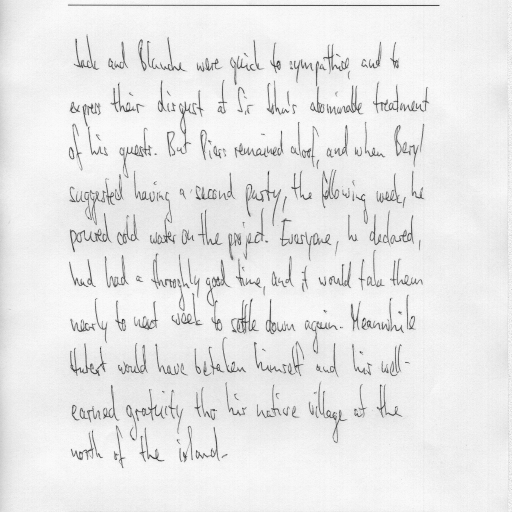 Jack and Blanche were quick to sympathise, and to
express their disgust at Sir John's abominable treatment
of his guests. But Piers remained aloof, and when Beryl
suggested having a second party, the following week, he
poured cold water on the project. Everyone, he declared,
had had a thoroughly good time, and it would take them
nearly to next week to settle down again. Meanwhile
would have betaken himself and his well-
earned gratuity to his native village at the
north of the island.